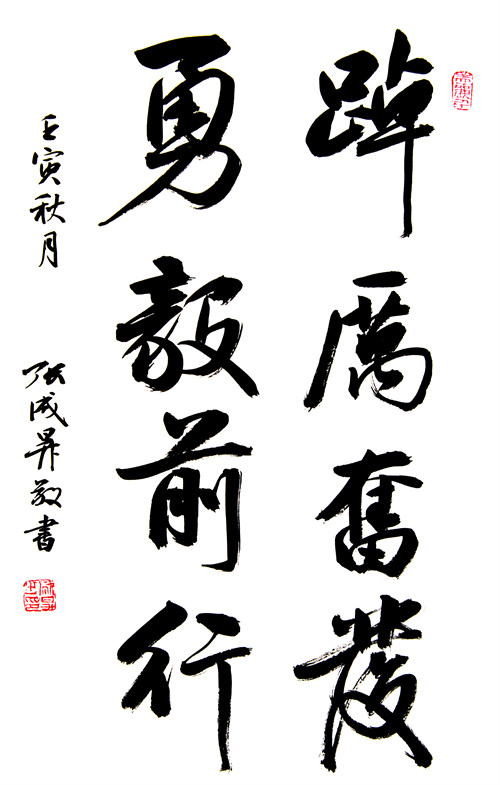 踔厲奮發
勇毅前行
壬寅秋月
張成昇敬書